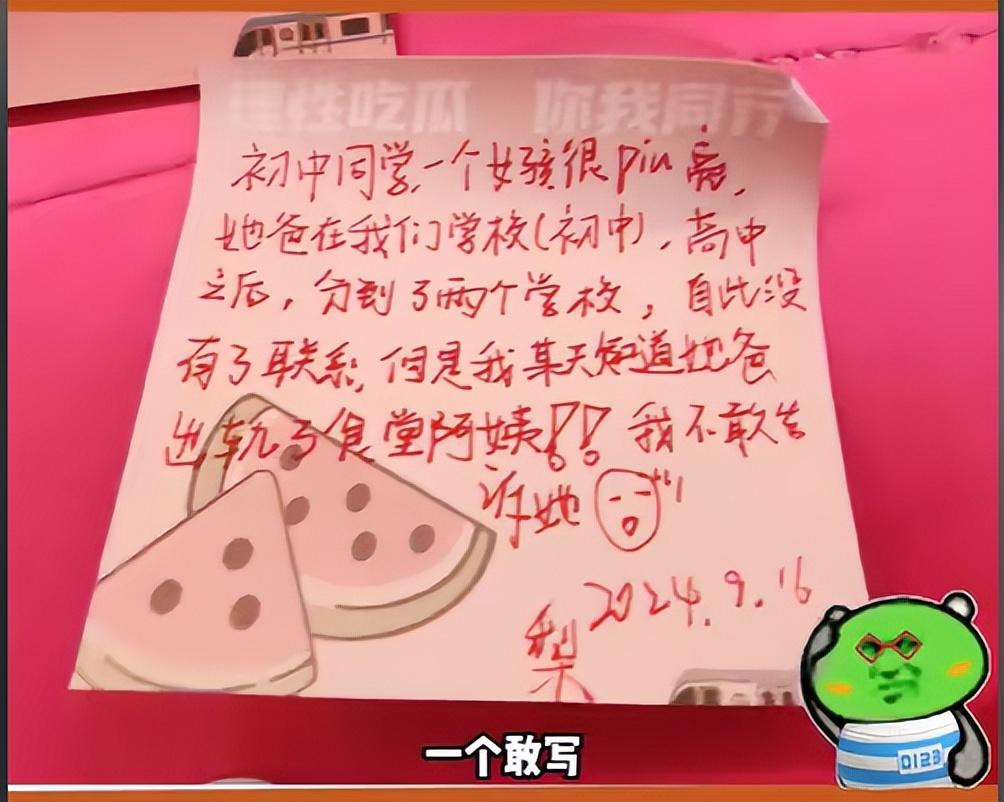 理性吃瓜 你我同行
初中同学,一个女孩很piu亮,
她爸在我们学校(初中),高中
之后,分到了两个学校,自此没
有了联系,但是我某天知道她爸
出轨了食堂阿姨!!我不敢告
诉她
2024.9.16
梨
0123
一个敢写